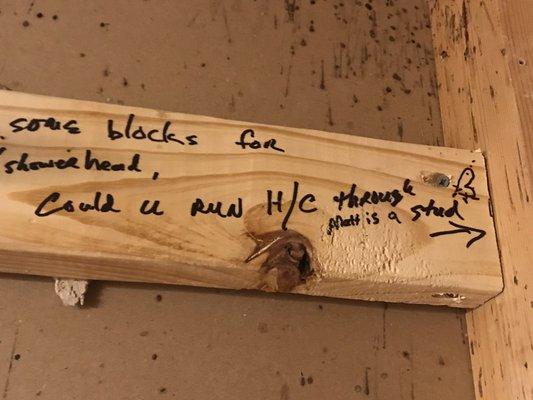 some blocks for
"showerhead,
Could u RUN H/C through
Matt is a stud